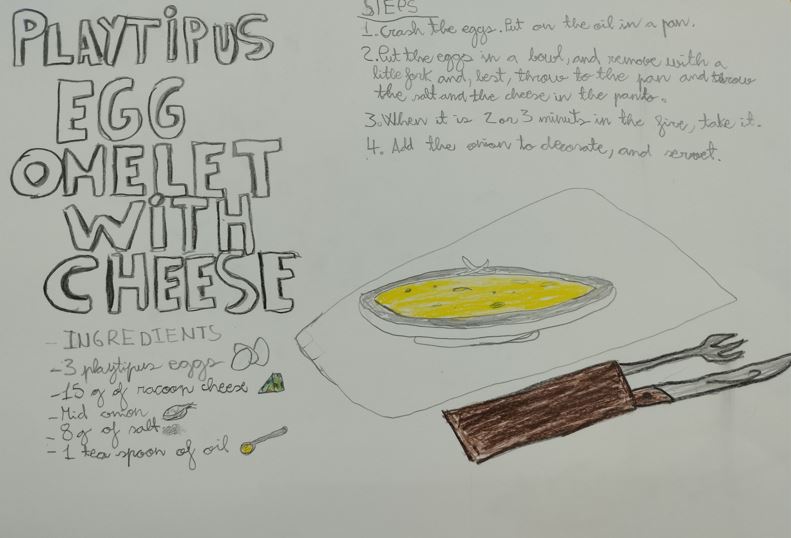 PLAYTiPUS
EGG
OMELET
WiTH
CHEESE
- INGREDIENTS
- 3 playtipus eggs
- 15 g of racoon cheese
- Mid onion
- 8g of salt
- 1 tea spoon of oil
STEPS
1. Crash the eggs. Put on the oil in a pan.
2. Put the eggs in a bowl, and remove with a
litle fork and, best, throw to the pan and throw
the salt and the cheese in the pan to.
3. When it is 2 or 3 minuts in the fire, take it.
4. Add the onion to decorate, and serve it.